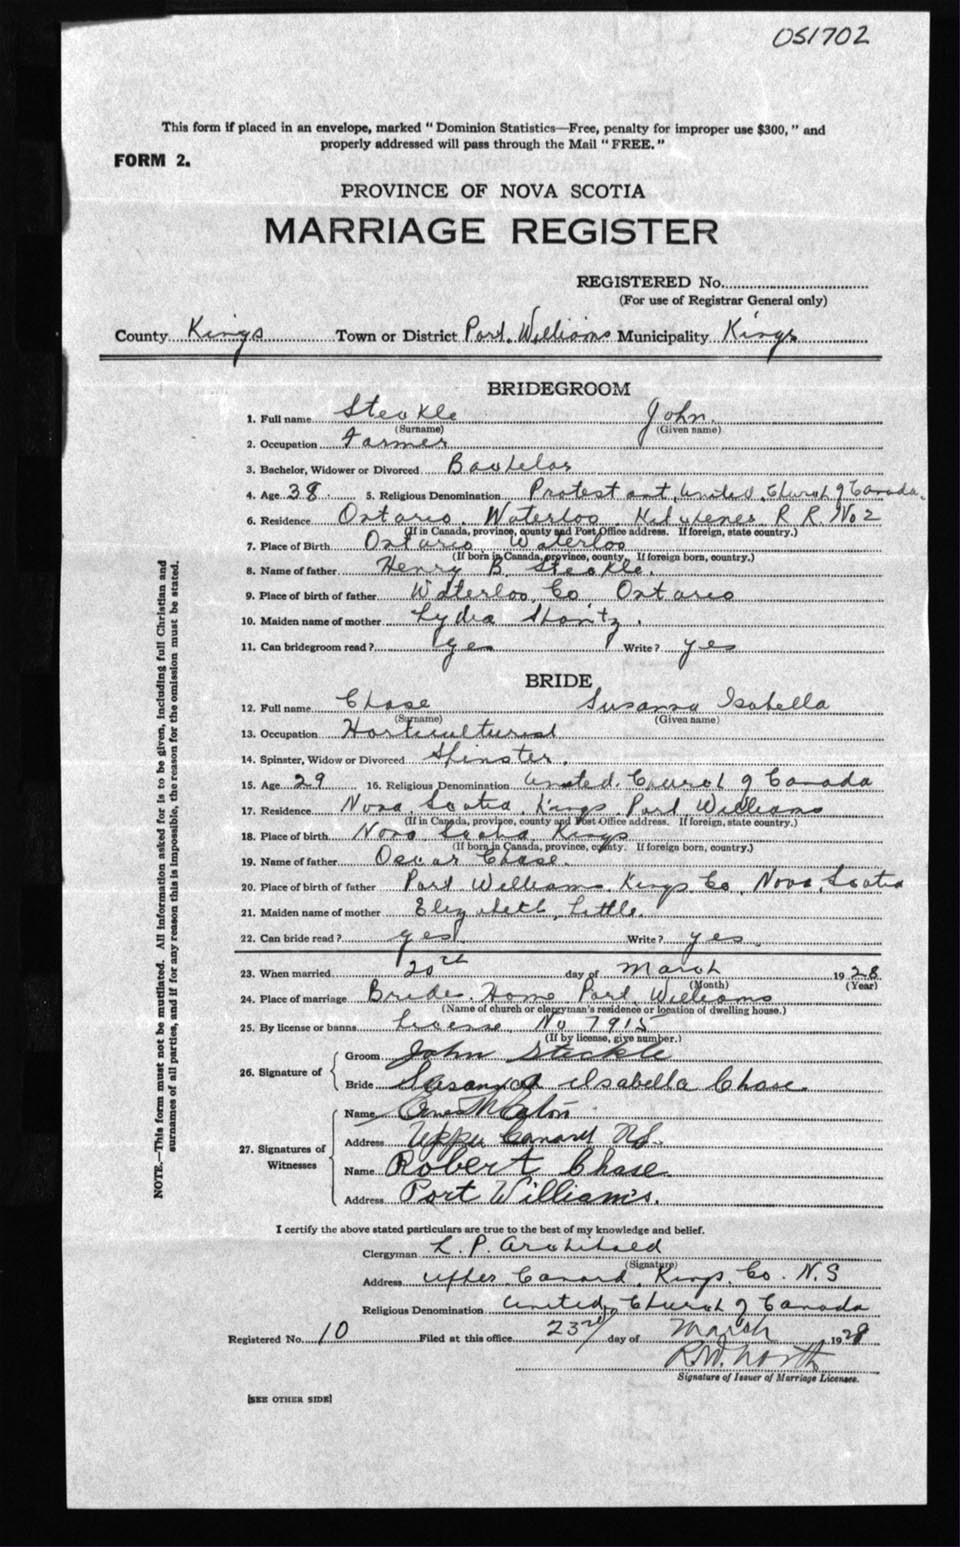 051702
This form if placed in an envelope, marked "Dominion Statistics—Free, penalty for improper use $300," and
properly addressed will pass through the Mail "FREE."
FORM 2.
PROVINCE OF NOVA SCOTIA
MARRIAGE REGISTER
REGISTERED No.
(For use of Registrar General only)
County Kings Town or District Port Williams Municipality Kings
BRIDEGROOM
1. Full name Steckle John
(Surname) (Given name)
2. Occupation Farmer
3. Bachelor, Widower or Divorced Bachelor
4. Age 38 5. Religious Denomination Protestant, United Church of Canada
6. Residence Ontario Waterloo Kitchener R R. No 2
(If in Canada, province, county and Post Office address. If foreign, state country.)
7. Place of Birth Ontario Waterloo
(If born in Canada, province, county. If foreign born, country.)
8. Name of father Henry B. Steckle.
9. Place of birth of father Waterloo Co Ontario
10. Maiden name of mother Lydia
11. Can bridegroom read? yes Write? yes
BRIDE
12. Full name Chase Susanna Isabella
(Surname) (Given name)
13. Occupation Horticulturist
14. Spinster, Widow or Divorced Spinster.
15. Age 29 16. Religious Denomination United Church of Canada
17. Residence Nova Scotia Kings Port Williams
(If in Canada, province, county and Post Office address. If foreign, state country.)
18. Place of birth Nova Scotia Kings
(If born in Canada, province, county. If foreign born, country.)
19. Name of father Oscar Chase.
20. Place of birth of father Port Williams Kings Co., Nova Scotia
21. Maiden name of mother Elizabeth Little.
22. Can bride read? yes Write? yes.
23. When married 20th day of March 1928
(Month) (Year)
24. Place of marriage Brides Home Port Williams
(Name of church or clergyman's residence or location of dwelling house.)
25. By license or banns License No 7915
(If by license, give number.)
26. Signature of
Groom John Steckle
Bride Susanna Isabella Chase.
27. Signatures of Witnesses
Name Eaton
Address Upper Canard N.S.
Name Robert Chase
Address Port Williams.
I certify the above stated particulars are true to the best of my knowledge and belief.
Clergyman L. P. Archibald
(Signature)
Address Upper Canard Kings Co. N.S
Religious Denomination United Church of Canada
Registered No. 10 Filed at this office 23rd day of March 1928
R.W. North
Signature of Issuer of Marriage Licenses.
[SEE OTHER SIDE]
NOTE.—This form must not be mutilated. All information asked for is to be given, including full Christian and
surnames of all parties, and if for any reason this is impossible, the reason for the omission must be stated.